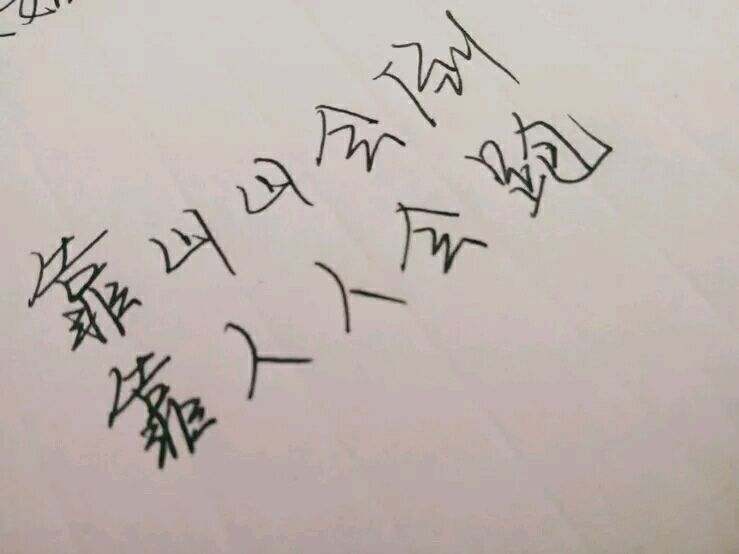 靠山山会倒
靠人人会跑